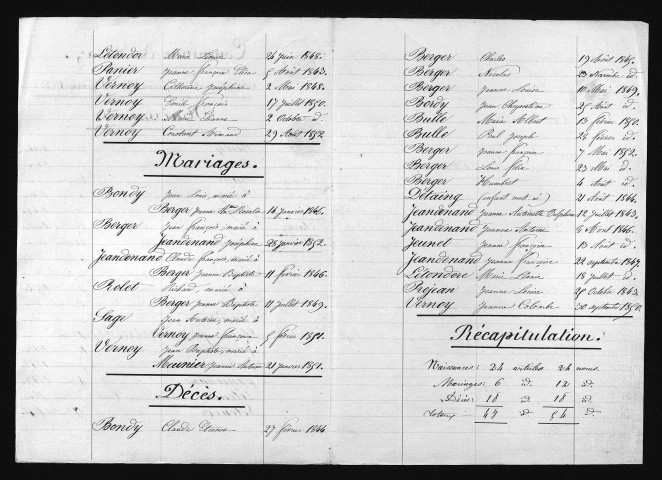 Létondor Marie Louise 24 juin 1848.
Panier Jeanne françoise 5 Août 1843.
Vernoy Catherine Joséphine 2 Mai 1848.
Vernoy Emile françois 17 juillet 1850.
Vernoy Marie 2 Octobre d.
Vernoy Constant Armand 29 Août 1852
Mariages.
Bondy Jean Louis, marié à
Berger Jeanne Rosalie 14 janvier 1846.
Berger Jean françois, marié à
Jeandenand Joséphine 28 janvier 1852.
Jeandenand Claude françois, marié à
Berger Jeanne Baptiste 11 février 1846.
Rolet marié à
Berger Jeanne Baptiste 11 juillet 1849.
Sage Jean Antoine, marié à
Vernoy Jeanne françoise 5 février 1851.
Vernoy Jean Baptiste, marié à
Meunier Jeanne Antoine 21 janvier 1851.
Décès.
Bondy Claude Etienne 27 février 1844
Berger Charles 19 Août 1845.
Berger Nicolas 23 Novembre id.
Berger Jeanne Louise 10 Mai 1849.
Bordy Jean Chrysostôme 25 Août d.
Bulle Marie Albert 13 février 1850.
Bulle Paul Joseph 28 février d.
Berger Jeanne françoise 7 Mai 1852.
Berger Louis félix 23 Mai d.
Berger Humbert 4 Août d.
Délaing (enfant mort né) 21 Août 1844.
Jeandenand Jeanne Antoinette Delphine 12 juillet 1843.
Jeandenand Jeanne Antoine 6 Avril 1846.
Jeunot Jeanne françoise 13 Août d.
Jeandenand Jeanne françoise 22 septembre 1847.
Létondore Marie Liance 18 juillet d.
Préjean Jeanne Louise 25 Octobre 1843.
Vernoy Jeanne Colombe 30 septembre 1850.
Récapitulation.
Naissances: 24 articles 24 noms.
Mariages: 6 d. 12 d.
Décès: 18 d. 18 d.
Totaux 48 d 54 d.